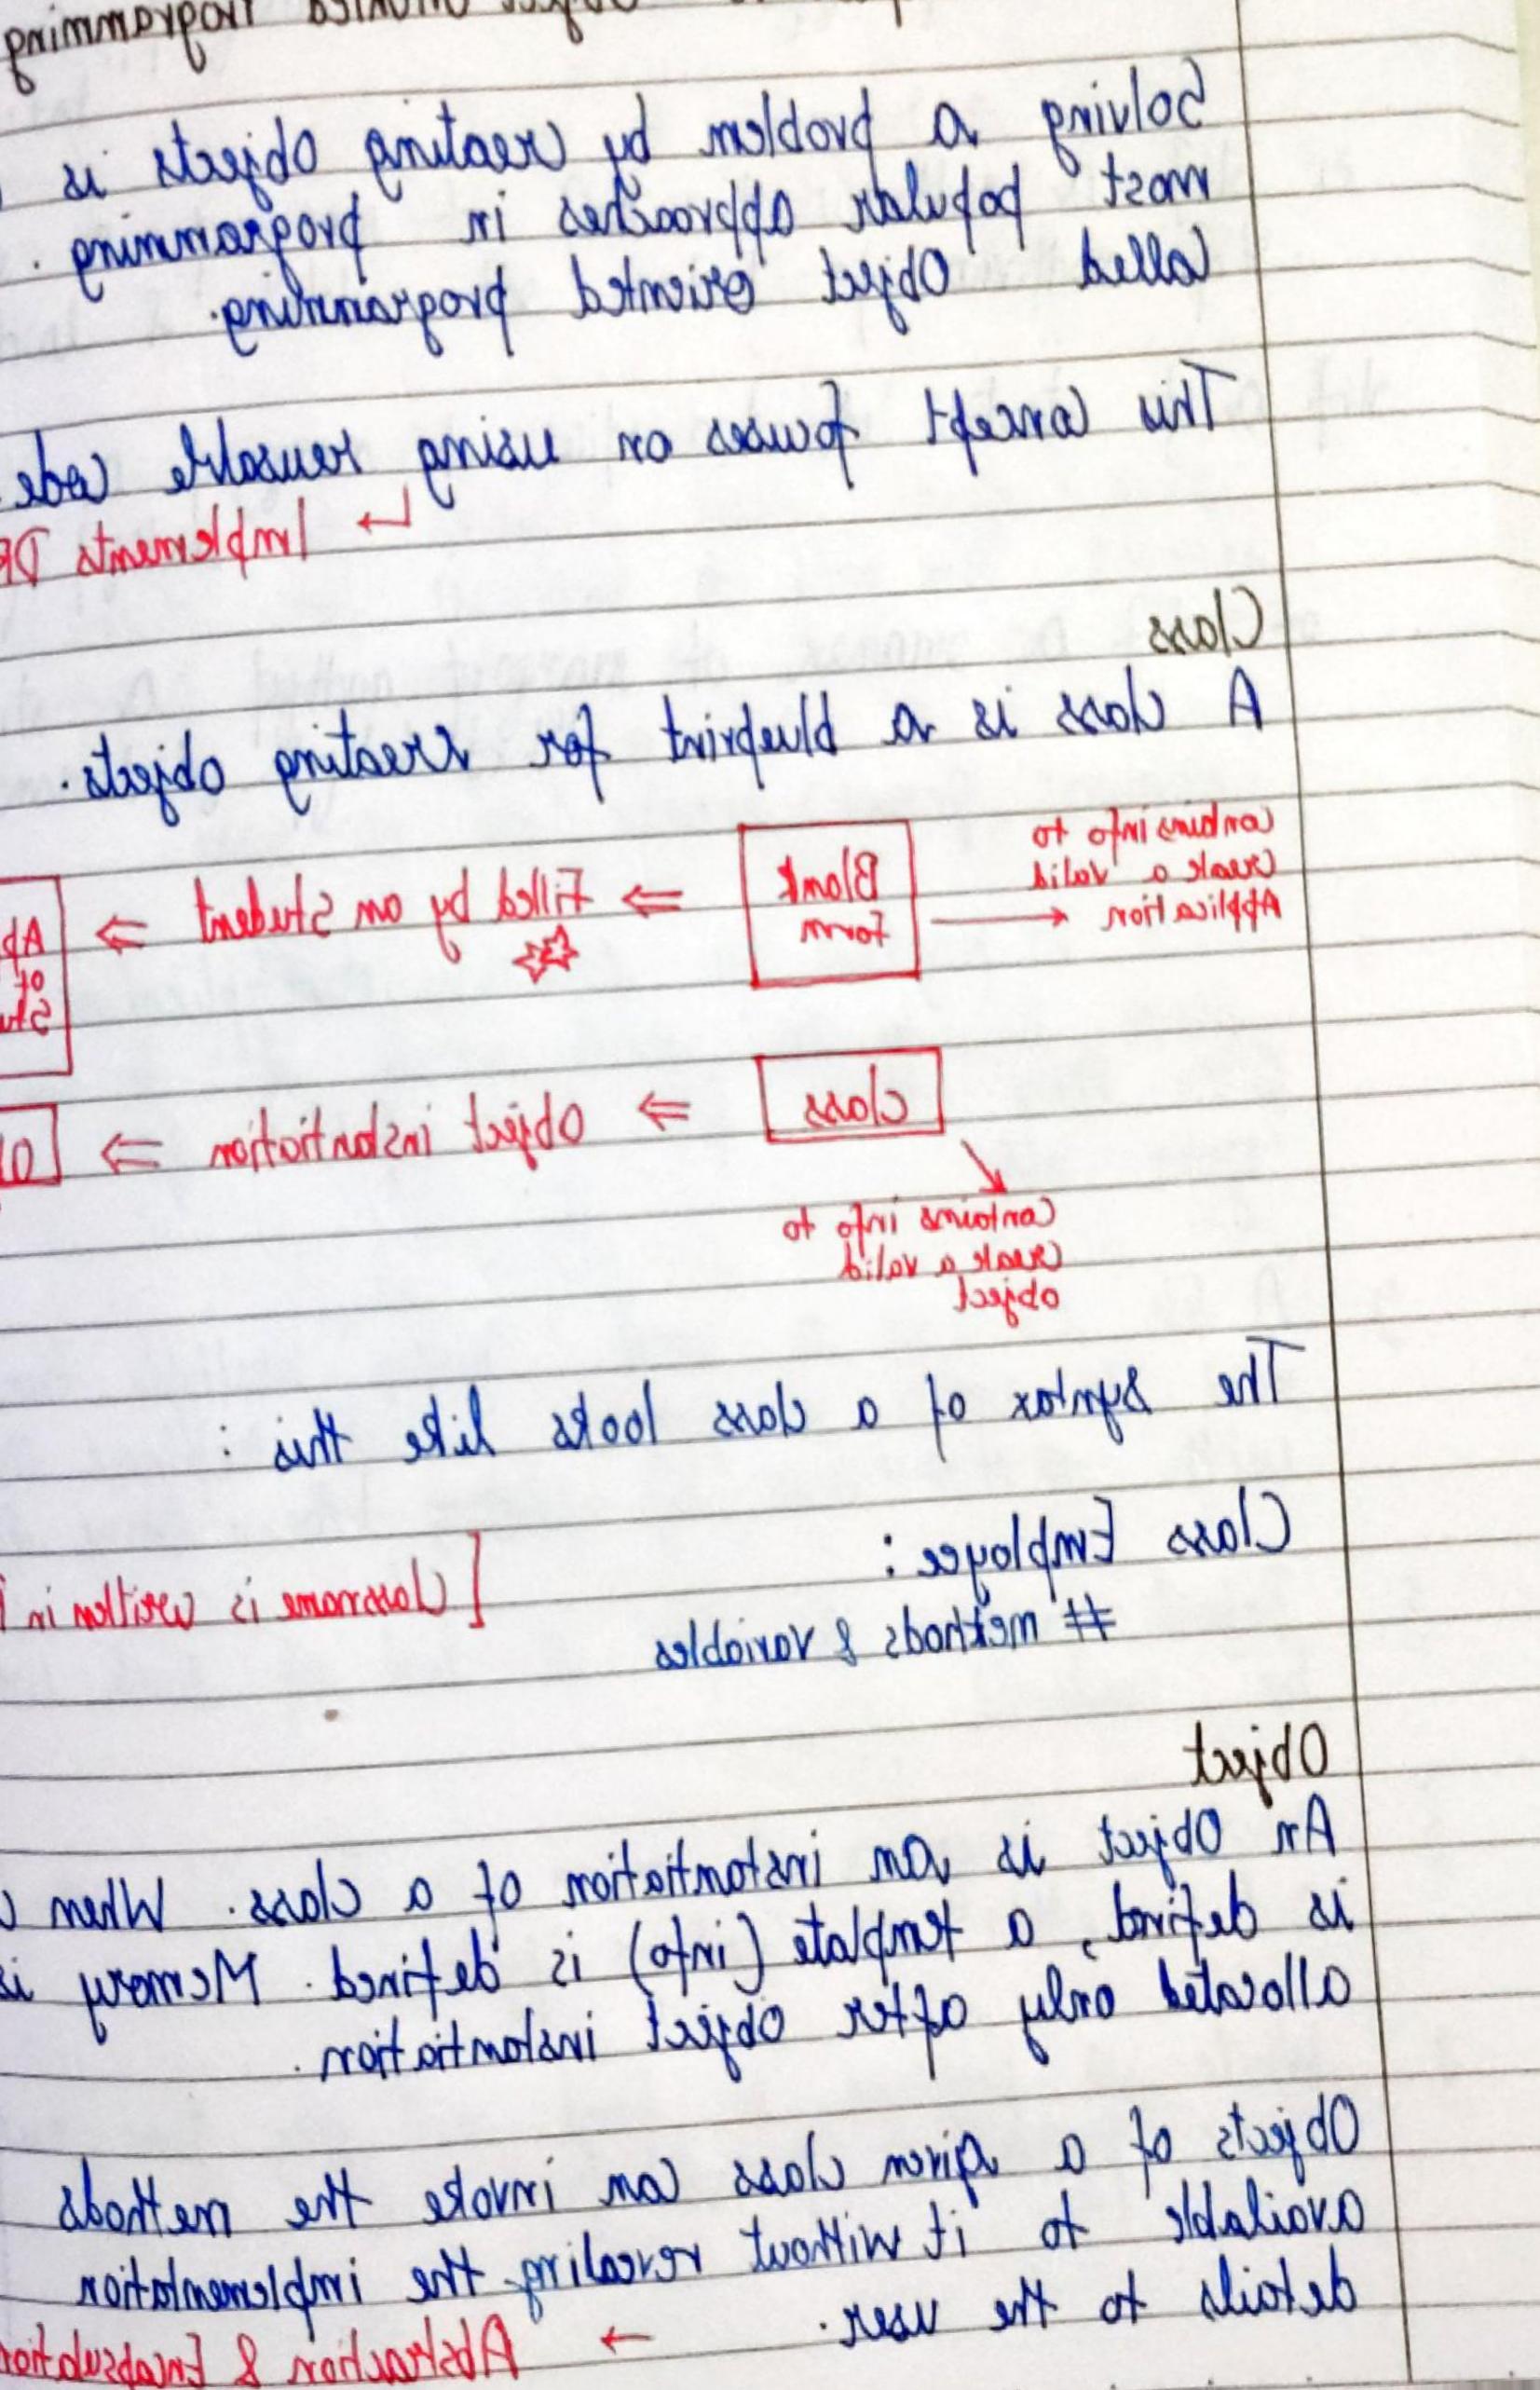 Object Oriented Programming
Solving a problem by creating objects is
most popular approaches in programming.
Called Object Oriented programming.
This concept focuses on using reusable code.
↳ Implements
Class
A class is a blueprint for creating objects.
contains info to
create a valid
Application → Blank form ⇒ Filled by an Student ⇒
of
class ⇒ Object instantiation ⇒
Contains info to
create a valid
object
The syntax of a class looks like this :
Class Employee :
[Classname is written in
# methods & variables
Object
An Object is an instantiation of a class. When
is defined, a template (info) is defined. Memory is
allocated only after object instantiation.
Objects of a given class can invoke the methods
available to it without revealing the implementation
details to the user. → Abstraction & Encapsulation